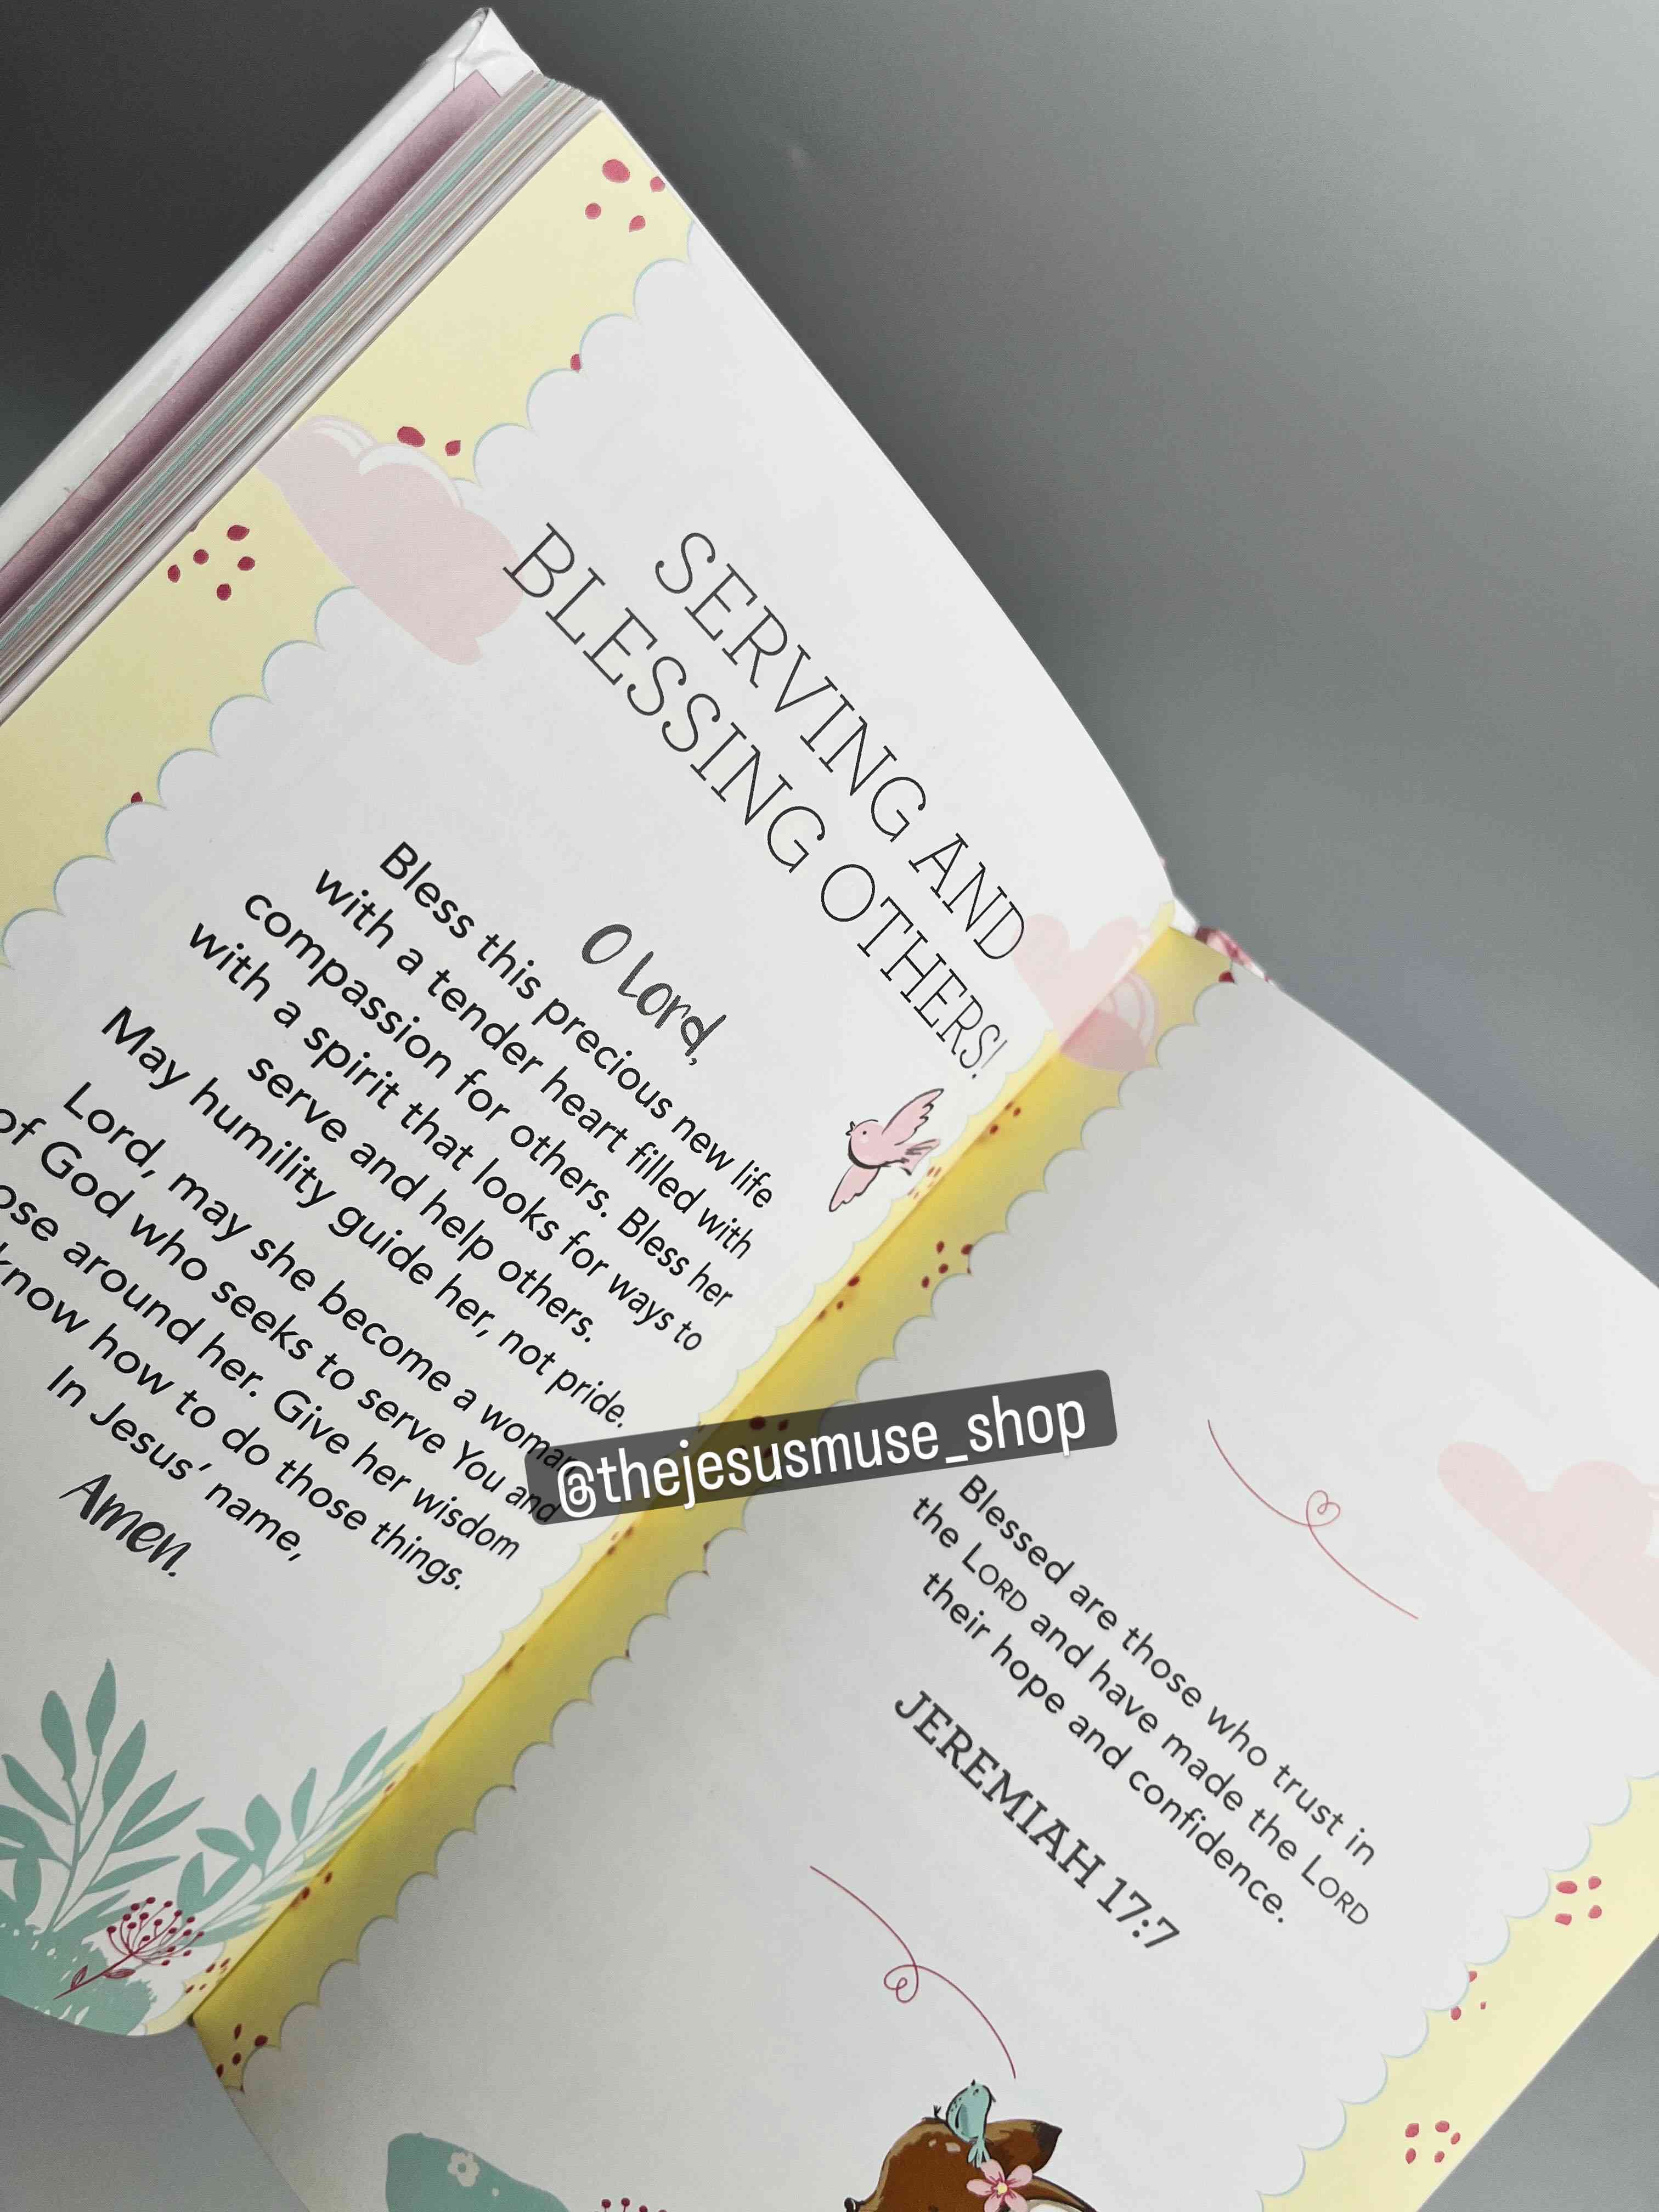 SERVING AND
BLESSING OTHERS!
O Lord,
Bless this precious new life
with a tender heart filled with
compassion for others. Bless her
with a spirit that looks for ways to
serve and help others.
May humility guide her, not pride.
Lord, may she become a woman
of God who seeks to serve You and
around her. Give her wisdom
know how to do those things.
In Jesus’ name,
Amen.
@thejesusmuse_shop
Blessed are those who trust in
the LORD and have made the LORD
their hope and confidence.
JEREMIAH 17:7